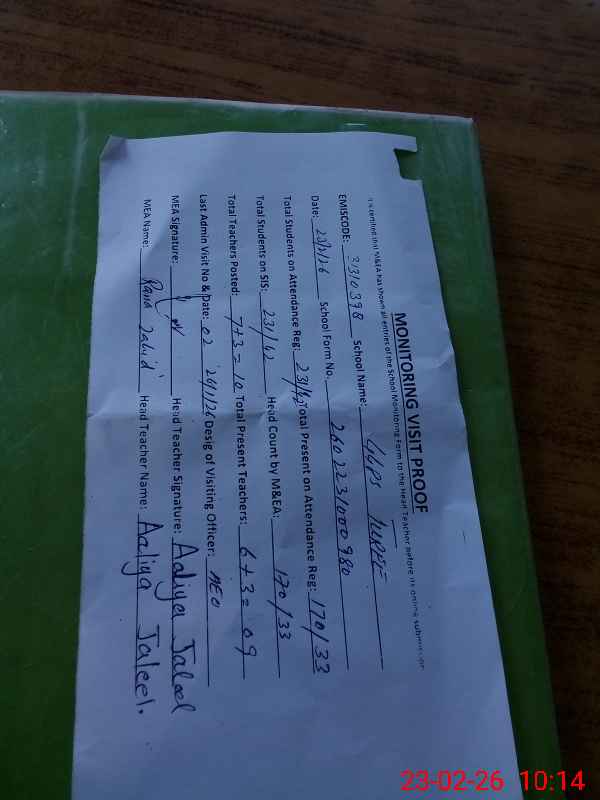 MONITORING VISIT PROOF
It is certified that M&EA has shown all entries of the School Monitoring Form to the Head Teacher before its online submission
EMISCODE: 31310398 School Name: GGPS
Date: 23/2/26 School Form No. 2602231000980
Total Students on Attendance Reg: 231/42 Total Present on Attendance Reg: 170/33
Total Students on SIS: 231/42 Head Count by M&EA: 170/33
Total Teachers Posted: 7+3=10 Total Present Teachers: 6+3=09
Last Admin Visit No & Date: 02 24/1/26 Desig of Visiting Officer: AEO
MEA Signature: Head Teacher Signature: Aaliya Jaleel
MEA Name: Rana Zahid Head Teacher Name: Aaliya Jaleel.
23-02-26 10:14